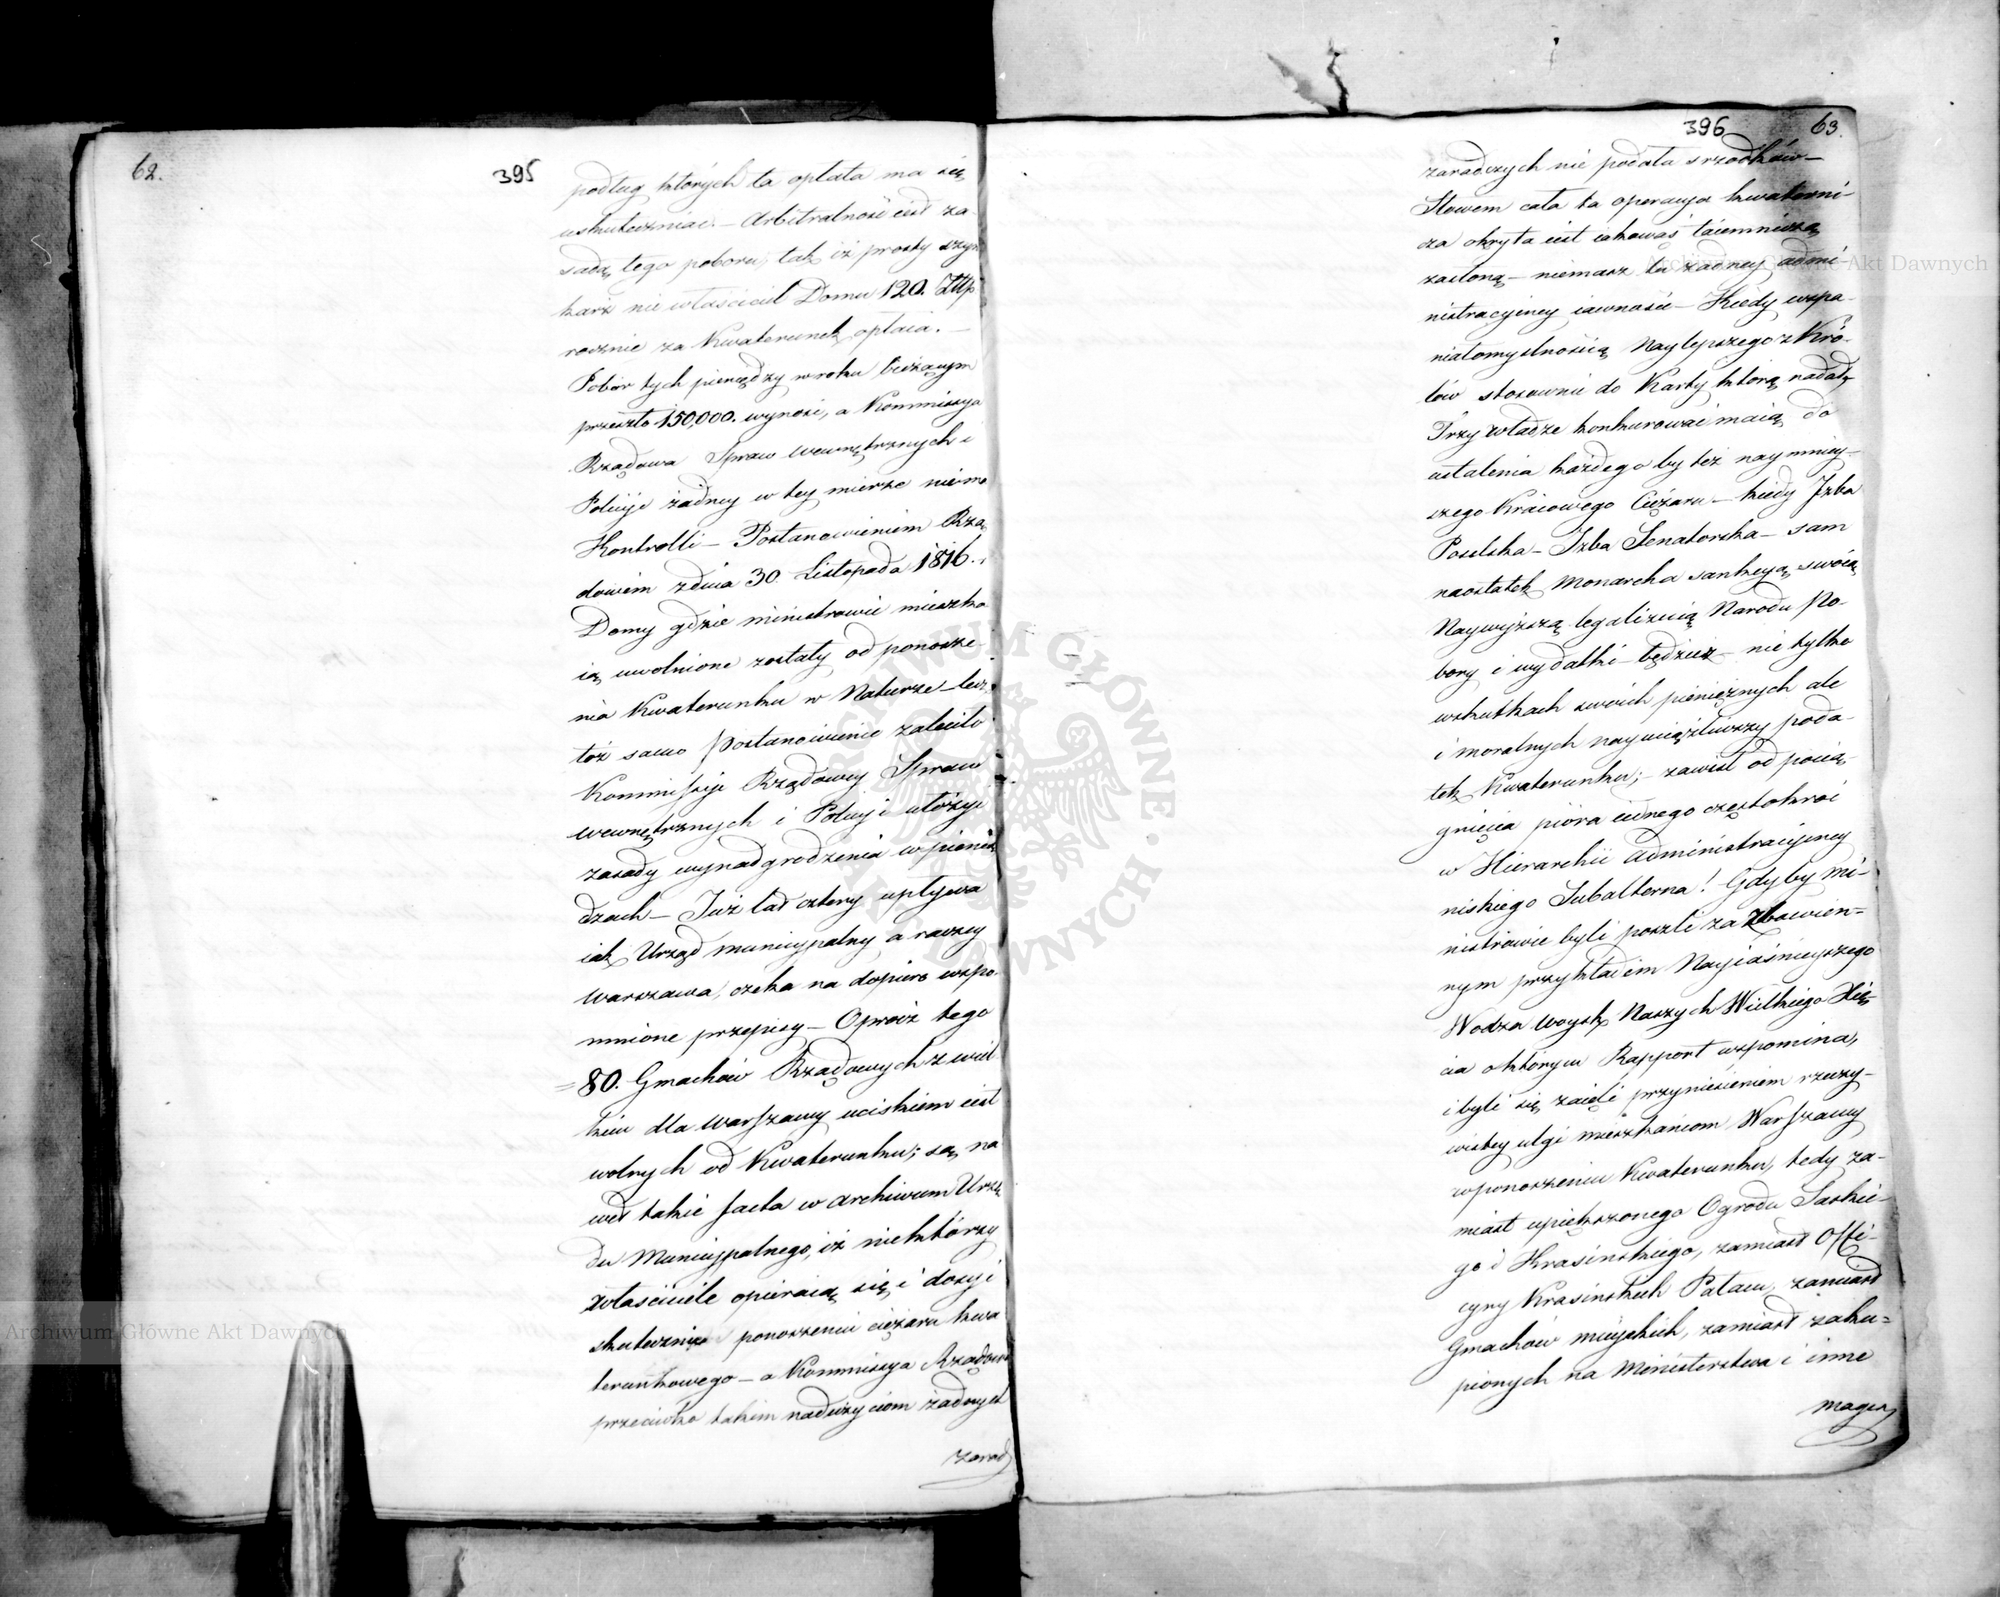 62.
395
podług których ta opłata ma się
uskuteczniać. – Arbitralność iest za-
sadą tego poboru, tak iż prosty szyn
karz nie właściciel Domu 120. Złłp
rocznie za Kwaterunek opłaca. –
Pobór tych pieniędzy w roku bieżącym
przeszło 150,000. wynosi, a Kommissya
Rządowa Spraw Wewnętrznych i
Policyi żadney w tey mierze niema
Kontrolli – Postanowieniem Rzą
dowém z dnia 30 Listopada 1816.
Domy gdzie ministrowie mieszka
ią uwolnione zostały od ponosze
nia Kwaterunku w Naturze – lecz
toż samo Postanowienie zaleciło
Kommissyi Rządowey Spraw
wewnętrznych i Policyi ułożyć
zasady wynadgrodzenia w pienią
dzach – Już lat cztery upływa
iak Urząd municypalny a raczey
Warszawa, czeka na dopiero wspo-
mnione przepisy – Oprócz tego
80. Gmachów Rządowych z wiel
kim dla Warszawy uciskiem iest
wolnych od Kwaterunku; są na
wet takie facta w archiwum Urzę
du Municypalnego, iż niektórzy
właściciele opieraią się i dosyć
skutecznie ponoszeniu ciężaru kwa
terunkowego – a Kommissya Rządowa
przeciwko takim nadużyciom żadnych
zarad
396
63.
zaradczych nie podała srzodków –
Słowem cała ta operacya kwaterni-
cza okryta iest iakowąś taiemniczą
zasłoną – niemasz tu żadney admi-
nistracyiney iawności – Kiedy wspa-
niałomyslnością Naylepszego z Kró-
lów stosownie do Karty którą nadał,
Trzy władze konkurować maią do
ustalenia każdego by też naymniey-
szego Kraiowego Ciężaru – kiedy Izba
Poselska – Izba Senatorska – sam
naostatek Monarcha sankcyą swoią
Naywyższą legalizuią Narodu Po-
bory i wydatki – tędzież – nie tylko
w skutkach swoich pieniężnych ale
i moralnych nayuciążliwszy poda-
tek Kwaterunku; – zawisł od pocią-
gnięcia pióra iednego częstokroć
w Hierarchii administracyiney
niskiego Subalterna! Gdyby mi-
nistrowie byli poszli za Zbawien=
nym przykładem Nayiaśnieyszego
Wodza Woysk Naszych Wielkiego Xię-
cia o którym Rapport wspomina,
i byli się zaięli przyniesieniem rzeczy-
wistey ulgi mieszkańcom Warszawy
w ponoszeniu Kwaterunku, tedy za-
miast upiększonego Ogrodu Saskie-
go i Krasińskiego, zamiast Offi-
cyny Krasińskich Pałacu, zamiast
Gmachów mieyskich, zamiast zaku=
pionych na Ministerstwa i inne
magaz
Archiwum Główne Akt Dawnych
Archiwum Główne Akt Dawnych
ARCHIWUM GŁÓWNE AKT DAWNYCH